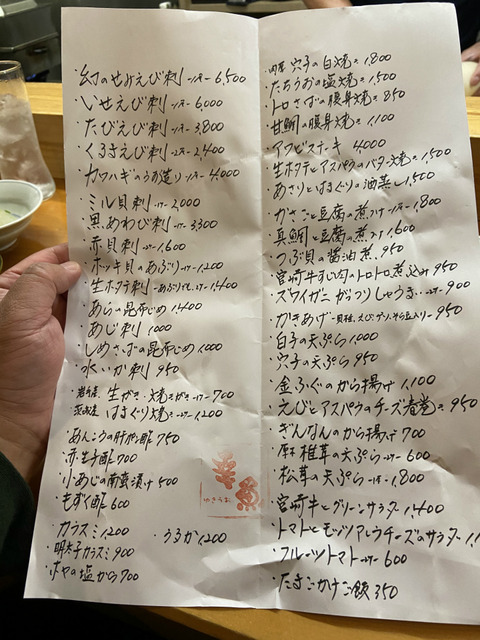 ・幻のせみえび刺 -1尾- 6,500
・いせえび刺 -1尾- 6,000
・たびえび刺 -1尾- 3,800
・くるまえび刺 -2尾- 2,400
・カワハギのうす造り -1尾- 4,000
・ミル貝刺 -1ヶ- 2,000
・黒あわび刺 -1ケ- 3,300
・赤貝刺 -2ヶ- 1,600
・ホッキ貝のあぶり -1ケ- 1,200
・生ホタテ刺 -あぶり可- 1,400
・あらの昆布じめ 1,400
・あじ刺 1,000
・しめさばの昆布じめ 1,000
・水いか刺 950
・岩手産 生がき・焼きがき -1ケ- 700
・茨城産 はまぐり焼き -2ケ- 1,200
・あんこうの肝ポン酢 750
・赤生子酢 700
・小あじの南蛮漬け 500
・もずく酢 600
・カラスミ 1,200
・うるか 1,200
・明太子カラスミ 900
・ホヤの塩から 700
幸魚
ゆきうお
・肉厚 穴子の白焼き 1,800
・たちうおの塩焼き 1,500
・トロさばの腹身焼き 850
・甘鯛の腹身焼き 1,100
・アワビステーキ 4,000
・生ホタテとアスパラのバター焼き 1,500
・あさりとはまぐりの油蒸し 1,500
・がさごと豆腐の煮つけ -1尾- 1,800
・真鯛と豆腐の煮つけ 1,600
・つぶ貝の醤油煮 950
・宮崎牛すじ肉のトロトロ煮込み 950
・ズワイガニがっつりしゅうまい -2ケ- 900
・かきあげ 950
・白子の天ぷら 1,000
・穴子の天ぷら 950
・金ふぐのから揚げ 1,100
・えびとアスパラのチーズ春巻き 950
・ぎんなんのから揚げ 700
・原木椎茸の天ぷら -2ケ- 600
・松茸の天ぷら -1本- 1,800
・宮崎牛とグリーンサラダ 1,400
・トマトとモッツアレラチーズのサラダ
・フルーツトマト -2ケ- 600
・たまごかけご飯 350